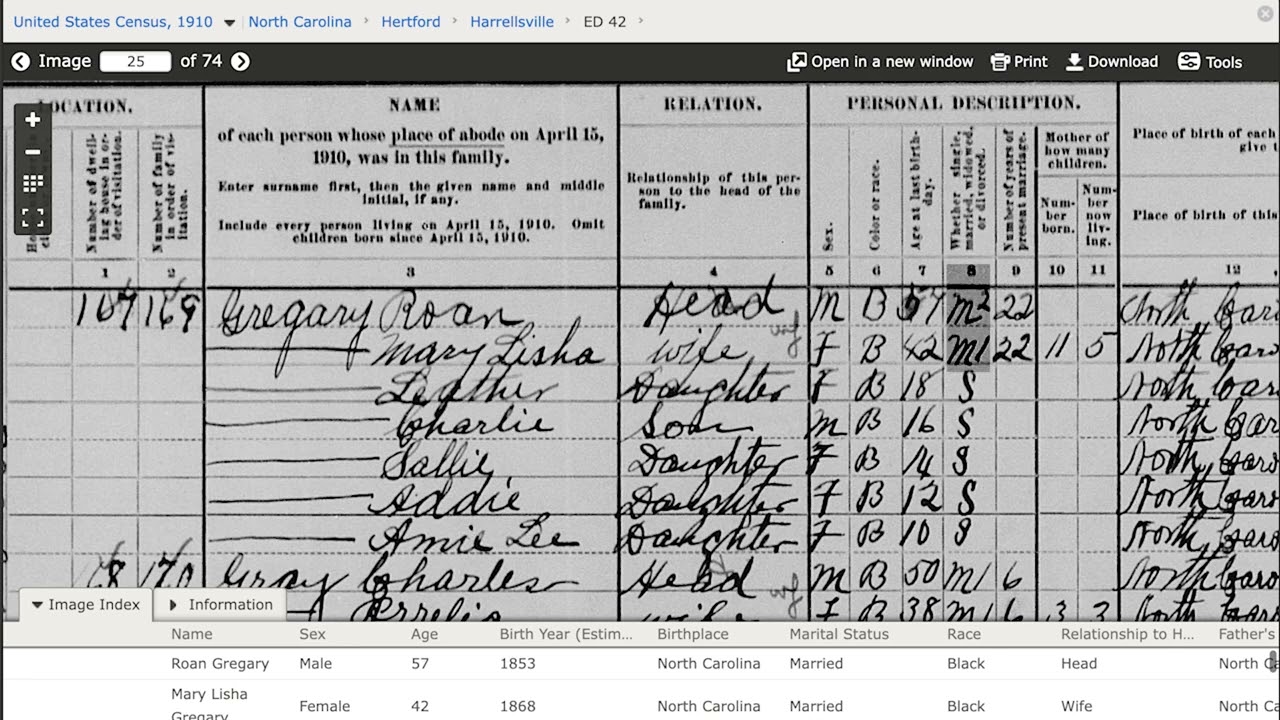 United States Census, 1910 North Carolina Hertford Harrellsville ED 42
Image 25 of 74 Open in a new window Print Download Tools
LOCATION. NAME RELATION. PERSONAL DESCRIPTION.
Number of dwelling house in order of visitation.
Number of family in order of visitation.
of each person whose place of abode on April 15,
1910, was in this family.
Enter surname first, then the given name and middle
initial, if any.
Include every person living on April 15, 1910. Omit
children born since April 15, 1910.
Relationship of this per-
son to the head of the
family.
Sex.
Color or race.
Age at last birth-
day.
Whether single,
married, widowed,
or divorced.
Number of years of
present marriage.
Mother of
how many
children.
Num-
ber
born.
Num-
ber
now
liv-
ing.
Place of birth of each
give t
Place of birth of this
1 2 3 4 5 6 7 8 9 10 11 12
167 169 Gregary Roan Head M B 57 M2 22 North Caro
Mary Lisha wife F B 42 M1 22 11 5 North Caro
Leather Daughter F B 18 S North Caro
Charlie Son M B 16 S North Car
Sallie Daughter F B 14 S North Caro
Addie Daughter F B 12 S North Caro
Amie Lee Daughter F B 10 S North Caro
170 Gray Charles Head M B 50 M1 6 North Caro
wife F B 38 M1 6 3 3 North Caro
Image Index Information
Name Sex Age Birth Year (Estim... Birthplace Marital Status Race Relationship to H... Father's
Roan Gregary Male 57 1853 North Carolina Married Black Head North C
Mary Lisha
Gregary Female 42 1868 North Carolina Married Black Wife North Ca